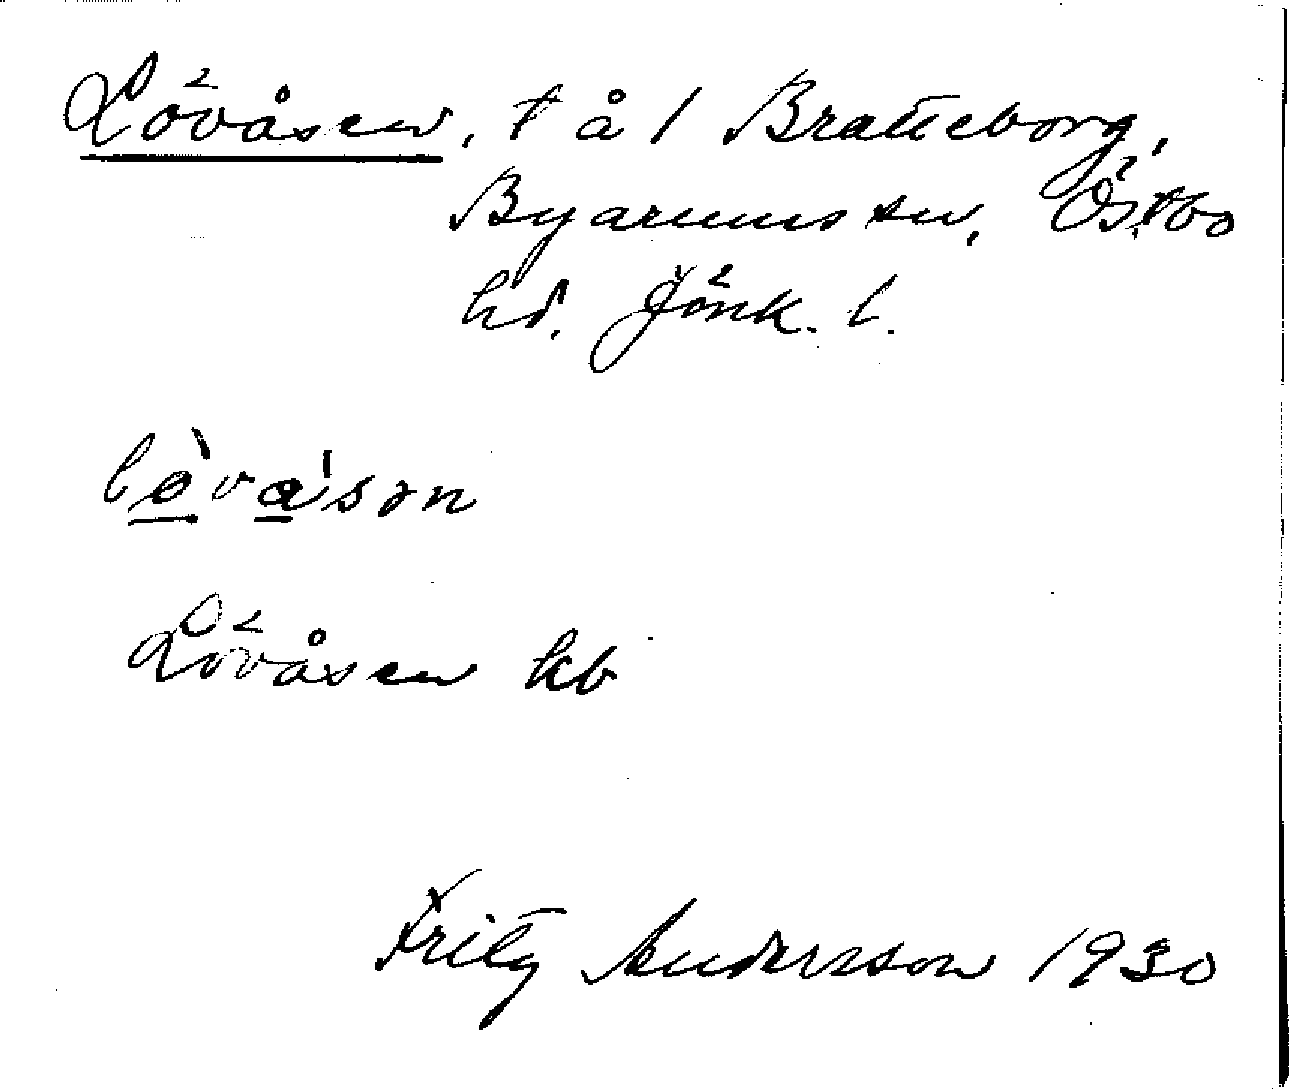 Lövåsen, t å 1 Bratteborg,
Byarums sn, Östbo
hd. Jönk. l.
Lövåsen kb
Fritz Andersson 1930